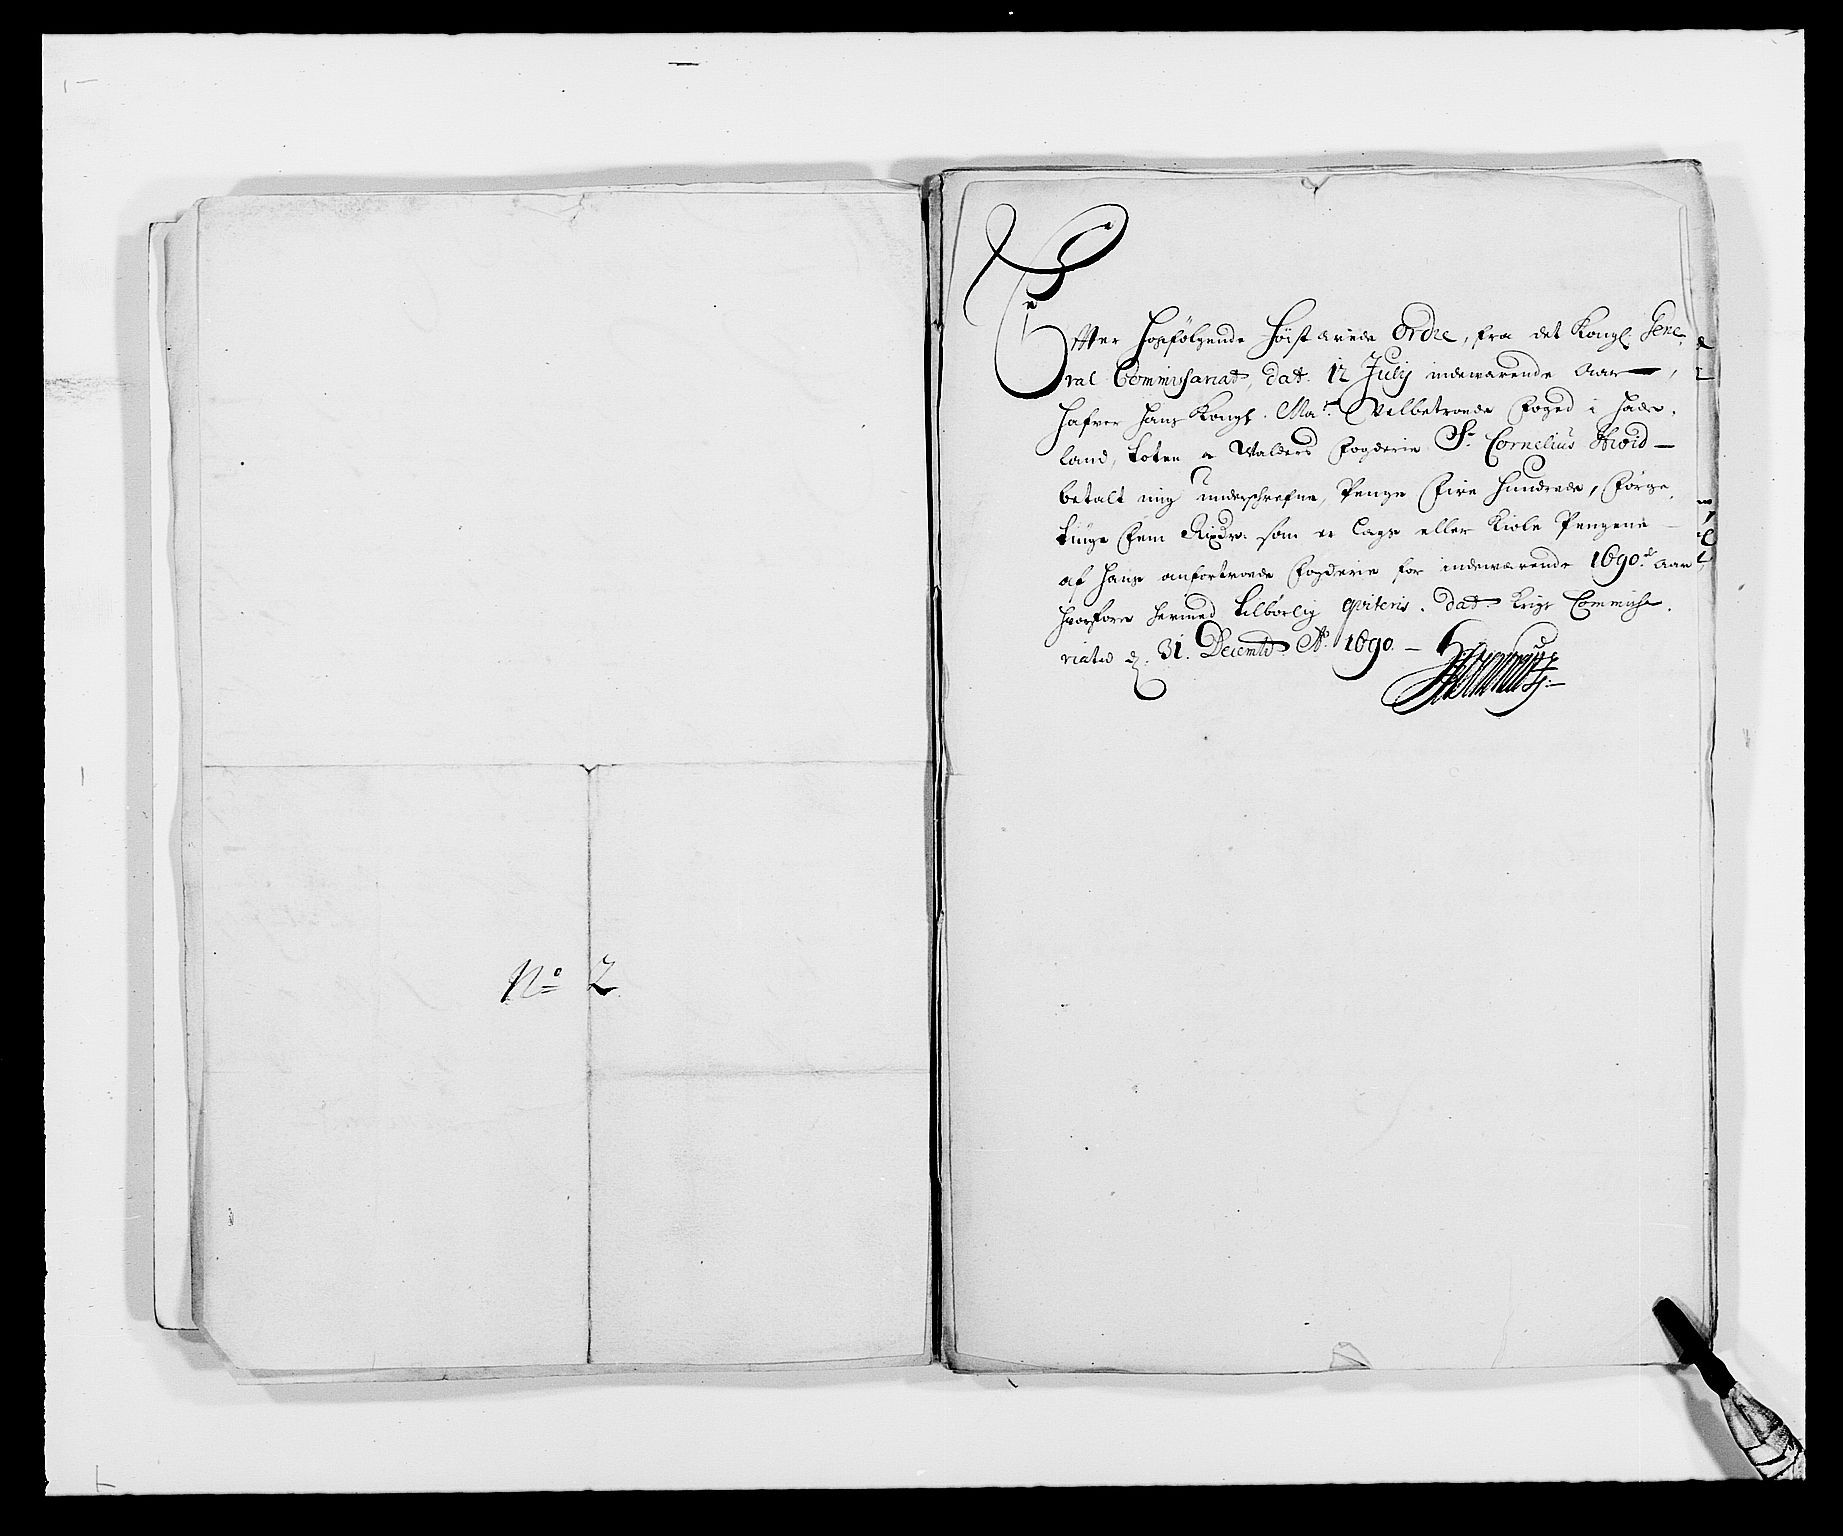 No 2
Efter hosfølgende høist ærede Ordre, fra det Kongl. Gene,
ral Commissariat, dat. 12 Julij indeværende Aar,
hafver Hans Kongl. Ma.ts Velbetroede Foged i Hade,
land, Toten a Walders Fogderie Sr. Cornelius Hvid
betalt mig underschrefne, Penge Fire Hundrede,Førge,
tiuge Fem Rixdr. som er Lage eller Kiole Pengene
af Hans anfortroede Fogderie for indeværende 1690.de Aar
hvorfore hermed tilbørlig qviteris. dat. Krigs Commissa,
riated d. 31. Decembr Ao. 1690